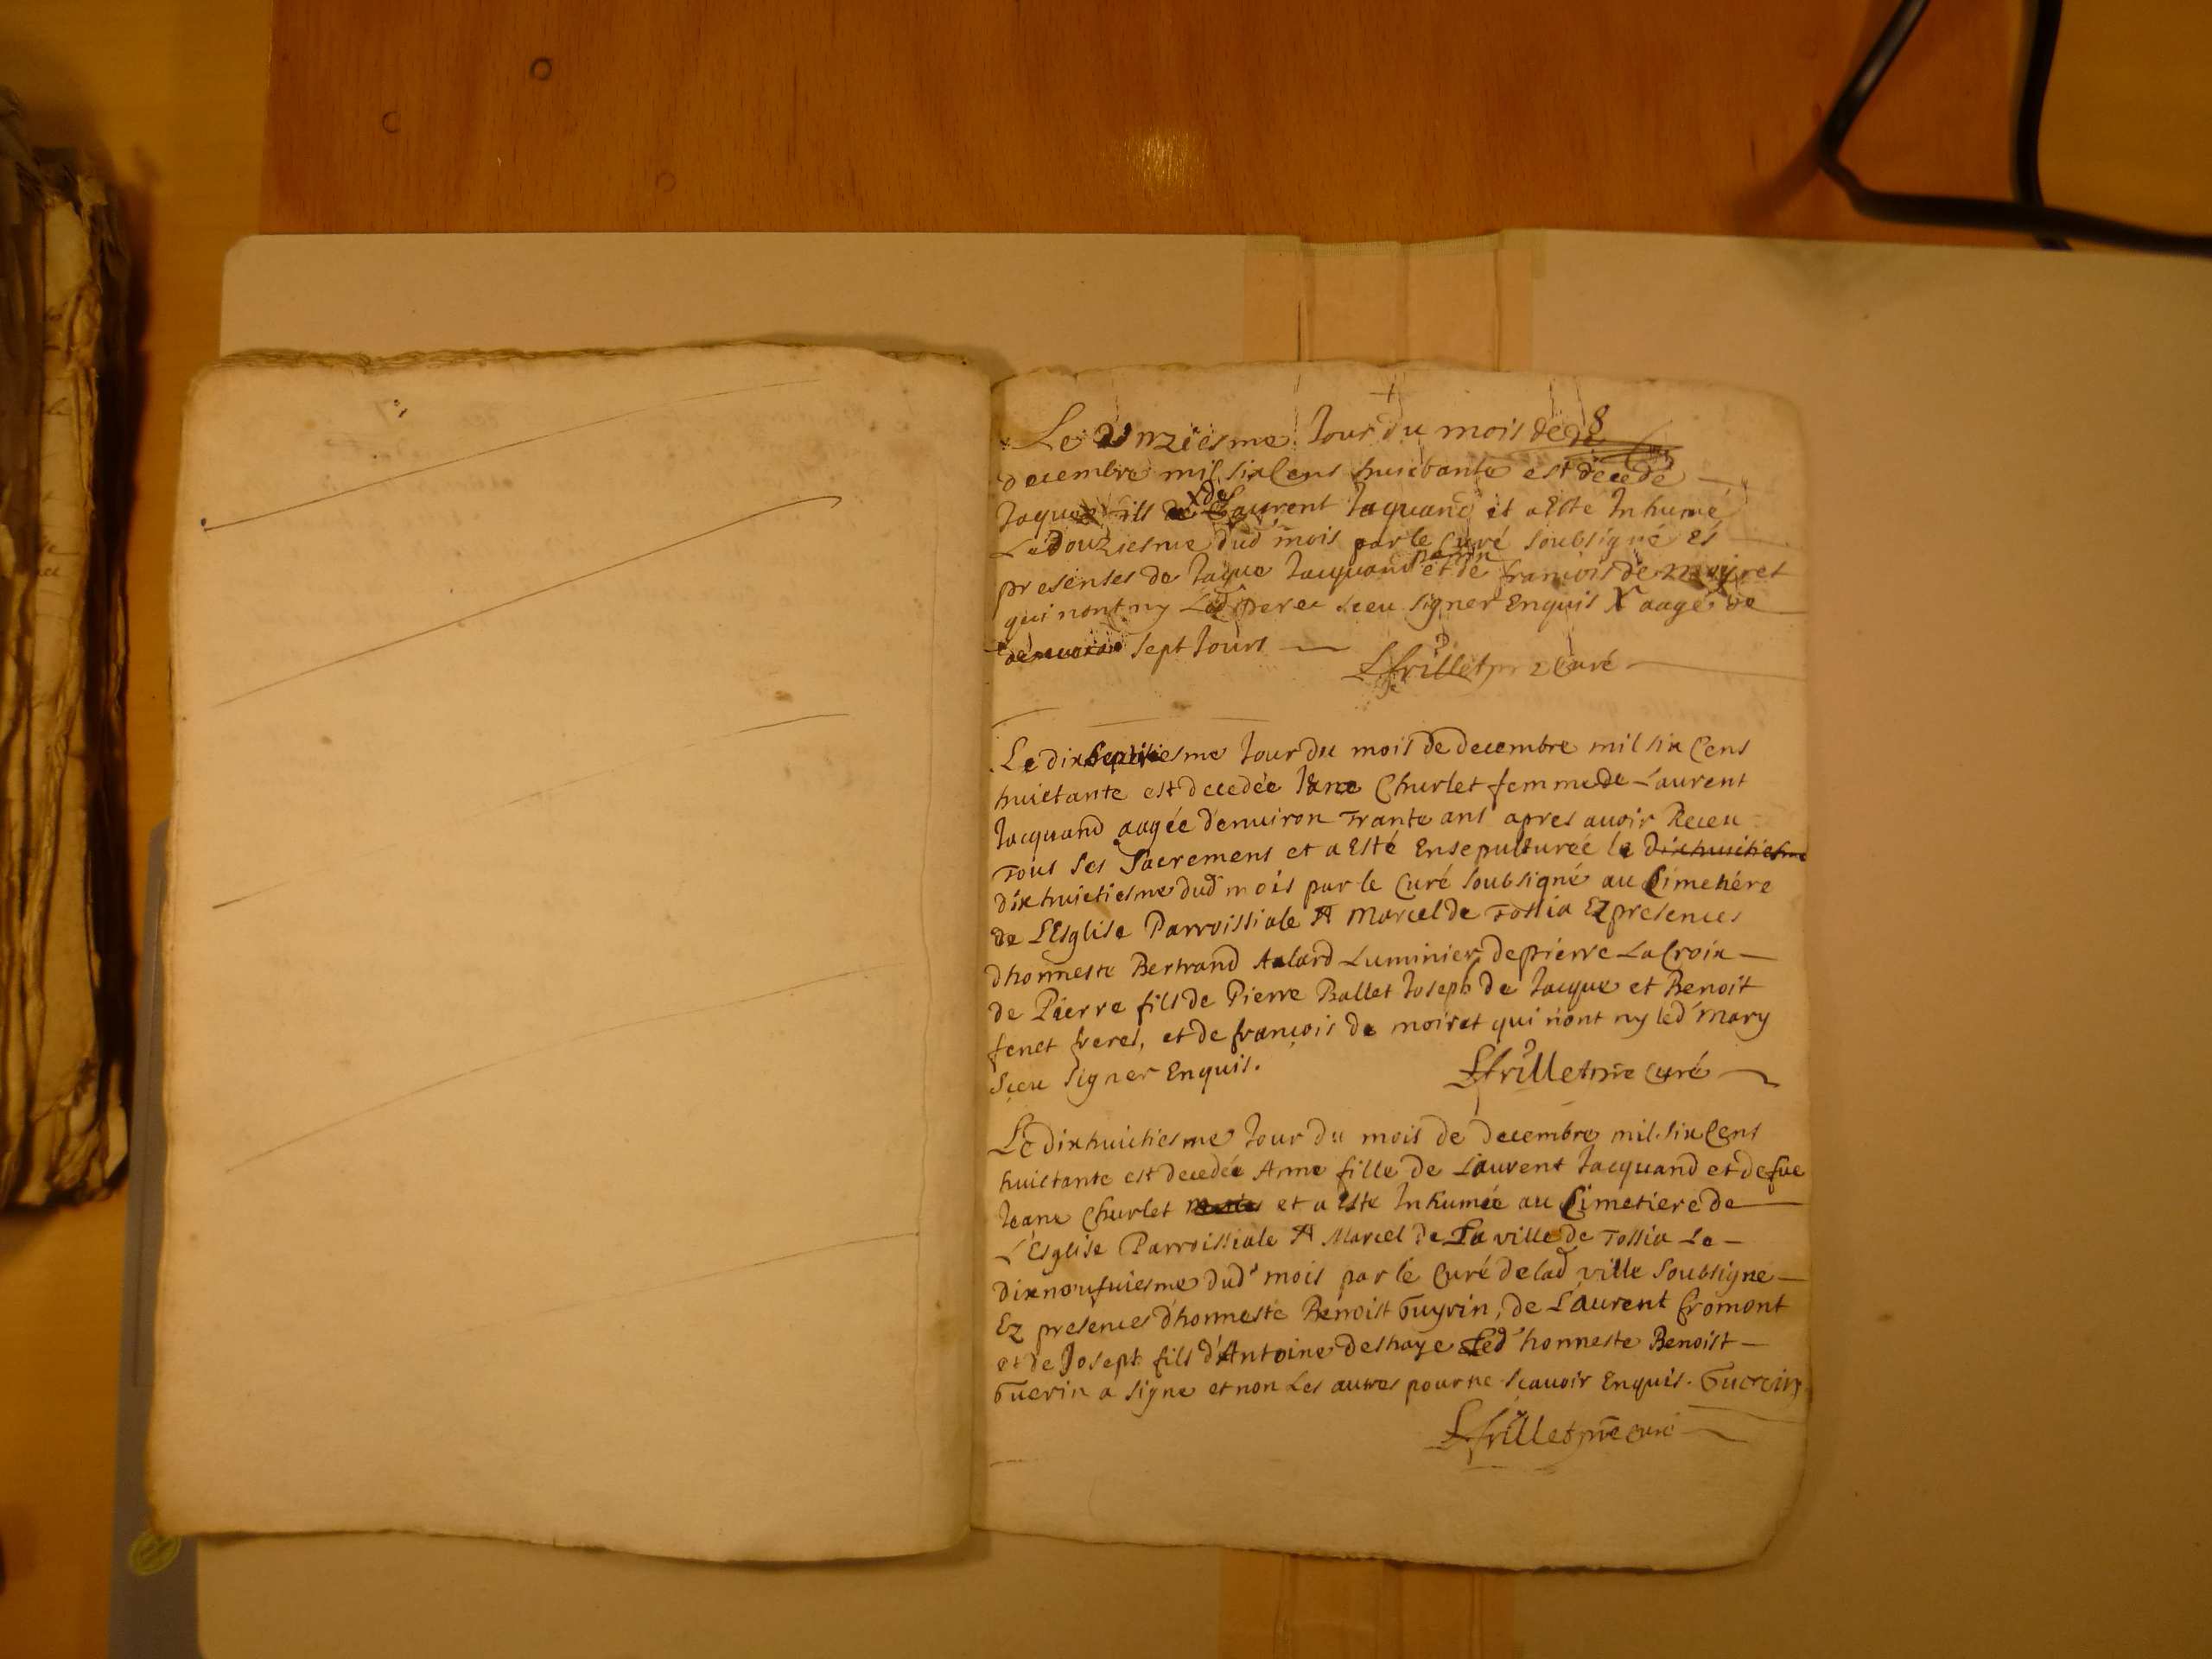 8
Le unziesme Jour du mois de
decembre mil six Cens huictante est décedé
Jaque fils de Laurent Jaquand et a Esté Inhumé
Le Douziesme dud mois par le Curé soubsigné és
presenses de Jaque Jacquand et de francois de moiret
qui nont ny Led pere sceu signer Enquis X aagé de
sept Jours
Lfrillet pre Curé
Le dix septiesme Jour du mois de decembre mil six Cens
huictante est decedée Jane Churlet femme de Laurent
Jacquand aagée denuiron Trante ans apres auoir Receu
Tous Ses Sacremens et a Esté Ensepulturée le dixhuictiesme
dixhuictiesme dud mois par le Curé soubsigné au Cimetiére
de LEsglise Parroissiale St Marcel de Tossia Ez presences
dhonneste Bertrand Aalard Luminier, de pierre LaCroix
de Pierre fils de Pierre Ballet Joseph de Jacque et Benoit
fenet freres, et de françois de moiret qui n'ont ny led mary
Sceu Signer Enquis.
Lfrillet pre Curé
Le dixhuictiesme Jour du mois de decembre mil six Cens
huictante est decedée Anne fille de Laurent Jacquand et de fue
Jeane Churlet et a Esté Inhumée au Cimetiere de
L'Esglise Parroissiale St Marcel de La ville de Tossia Le
dixneufuiesme dud mois par le Curé de lad ville Soubsigne
Ez presences d'honneste Benoist Guyrin, de Laurent Cromont
et de Joseph fils d'Antoine deshaye Led honneste Benoist
Guerin a signe et non Les autres pour ne Scauoir Enquis. Guerin
Lfrillet pre curé